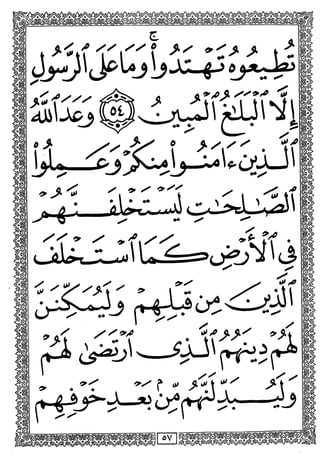 تُطِيعُوهُ تَهْتَدُوا۟ ۚ وَمَا عَلَى ٱلرَّسُولِ
إِلَّا ٱلْبَلَٰغُ ٱلْمُبِينُ ٥٤ وَعَدَ ٱللَّهُ
ٱلَّذِينَ ءَامَنُوا۟ مِنكُمْ وَعَمِلُوا۟
ٱلصَّٰلِحَٰتِ لَيَسْتَخْلِفَنَّهُمْ
فِى ٱلْأَرْضِ كَمَا ٱسْتَخْلَفَ
ٱلَّذِينَ مِن قَبْلِهِمْ وَلَيُمَكِّنَنَّ
لَهُمْ دِينَهُمُ ٱلَّذِى ٱرْتَضَىٰ لَهُمْ
وَلَيُبَدِّلَنَّهُم مِّنۢ بَعْدِ خَوْفِهِمْ
٥٧